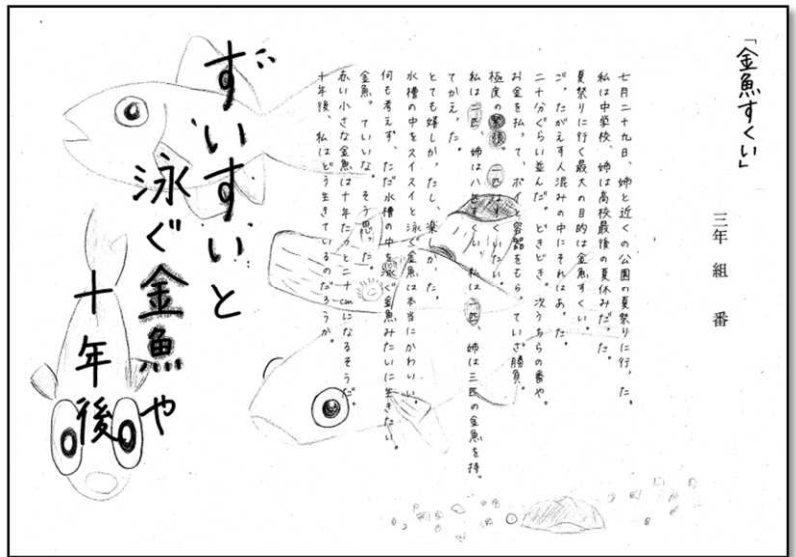 「金魚すくい」
三年 組 番
七月二十九日、姉と近くの公園の夏祭りに行った。
私は中学校、姉は高校最後の夏休みだった。
夏祭りに行く最大の目的は金魚すくい。
ごったがえす人混みの中にそれはあった。
二十分ぐらい並んだ。どきどき。次うちらの番や。
お金を払って、ポイと容器をもらっていざ勝負。
極度の緊張。一匹はすくいたい。
私は二匹、姉は八ひきすくい、私は二匹、姉は三匹の金魚を持
てかえった。
とても嬉しかったし、楽しかった。
水槽の中をスイスイと泳ぐ金魚は本当にかわいい。
何も考えず、ただ水槽の中を泳ぐ金魚みたいに生きたい。
金魚っていいな。そう思った。
赤い小さな金魚は十年たつと二十cmになるそうだ。
十年後、私はどう生きているのだろうか。
ずいすいと
泳ぐ金魚や
十年後